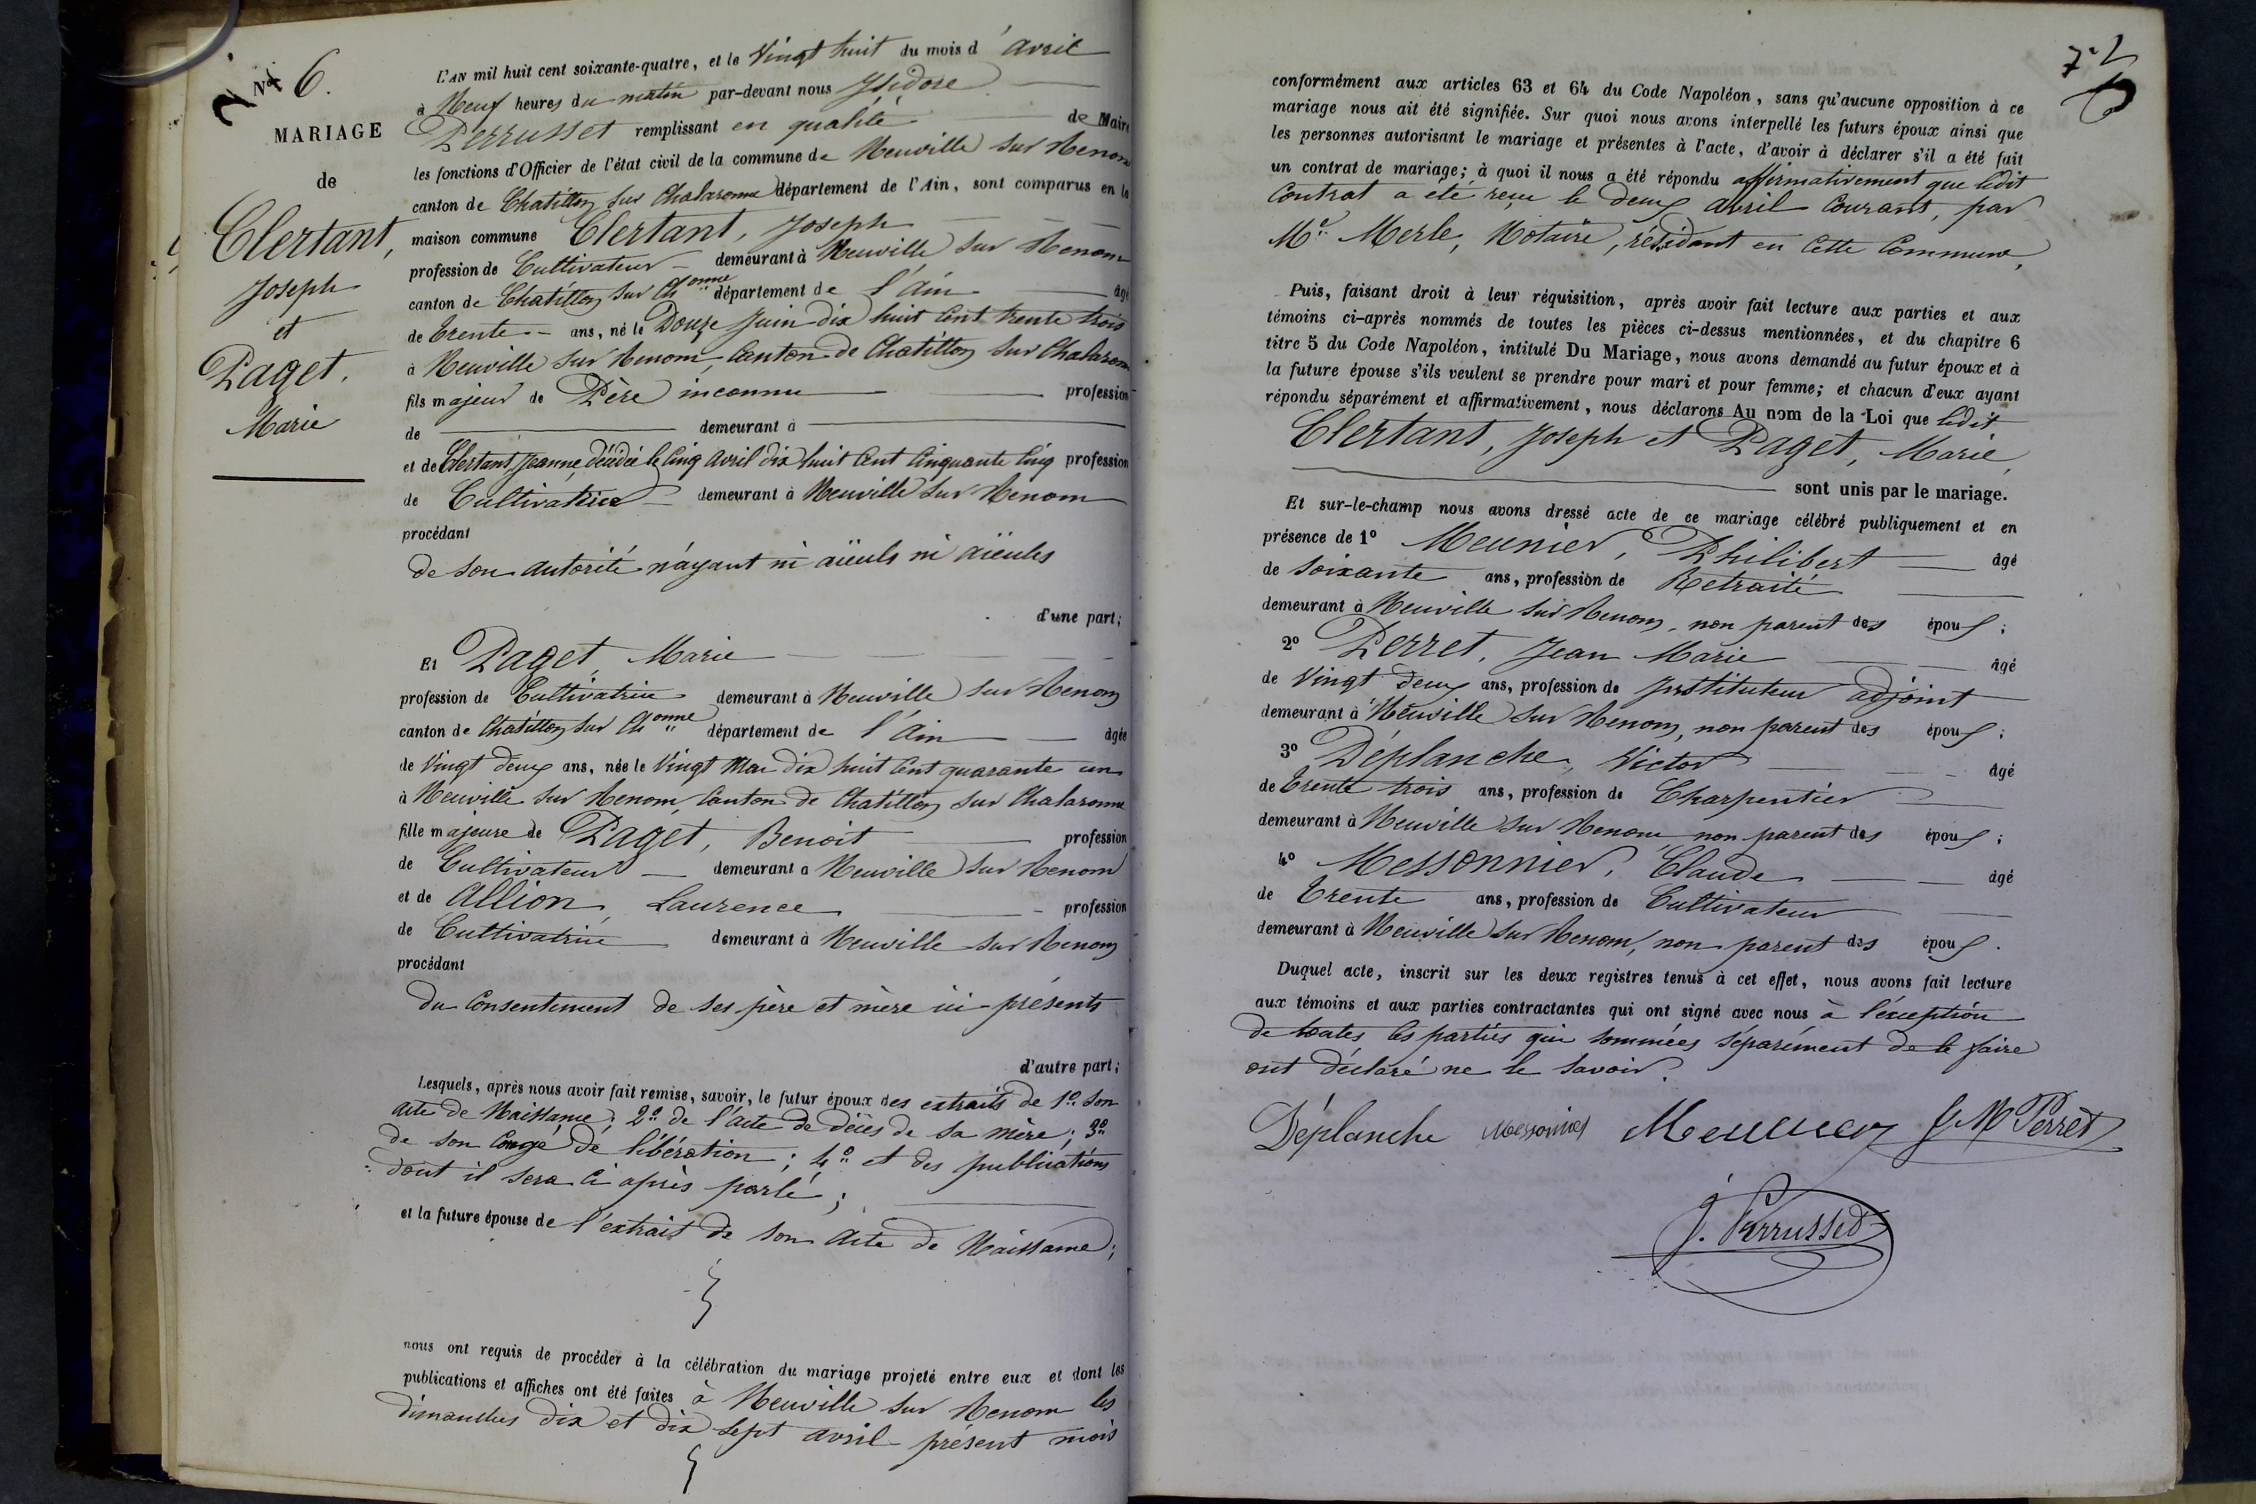 N° 6.
MARIAGE
de
Clertant,
Joseph
et
Paget.
Marie
L'AN mil huit cent soixante-quatre, et le Vingt huit du mois d'avril
à Neuf heures du matin par-devant nous Isidore
Perrusset remplissant en qualité de Maire
les fonctions d'Officier de l'état civil de la commune de Neuville sur Renom
canton de Chatillon sur Chalaronne département de l'Ain, sont comparus en la
maison commune Clertant, Joseph
profession de Cultivateur demeurant à Neuville sur Renom
canton de Chatillon sur Chonne département de l'Ain âgé
de trente ans, né le Douze Juin dix huit cent trente trois
à Neuville sur Renom, Canton de Chatillon sur Chalaronne
fils majeur de Père inconnu profession
de demeurant à
et de Clertant Jeanne, décédée le cinq avril dix huit cent cinquante cinq profession
de Cultivatrice demeurant à Neuville sur Renom
procédant
de son autorité n'ayant ni aïeuls ni aïeules
d'une part;
Et Paget, Marie
profession de Cultivatrice demeurant à Neuville sur Renom
canton de Chatillon sur Chonne département de l'Ain âgée
de Vingt deux ans, née le Vingt Mai dix huit cent quarante un
à Neuville sur Renom, Canton de Chatillon sur Chalaronne
fille majeure de Paget, Benoit profession
de Cultivateur demeurant à Neuville sur Renom
et de Allion, Laurence profession
de Cultivatrice demeurant à Neuville sur Renom
procédant
du consentement de ses père et mère ici présents
d'autre part;
Lesquels, après nous avoir fait remise, savoir, le futur époux des extraits de 1° son
acte de Naissance; 2° de l'acte de décès de sa mère; 3°
de son Congé de libération; 4° et des publications
dont il sera ci après parlé;
et la future épouse de l'extrait de son acte de Naissance;
nous ont requis de procéder à la célébration du mariage projeté entre eux et dont les
publications et affiches ont été faites à Neuville sur Renom les
dimanches dix et dix sept avril présent mois
conformément aux articles 63 et 64 du Code Napoléon, sans qu'aucune opposition à ce
mariage nous ait été signifiée. Sur quoi nous avons interpellé les futurs époux ainsi que
les personnes autorisant le mariage et présentes à l'acte, d'avoir à déclarer s'il a été fait
un contrat de mariage; à quoi il nous a été répondu affirmativement que ledit
Contrat a été reçu le deux avril courant, par
Me Merle, Notaire, résidant en cette Commune,
Puis, faisant droit à leur réquisition, après avoir fait lecture aux parties et aux
témoins ci-après nommés de toutes les pièces ci-dessus mentionnées, et du chapitre 6
titre 5 du Code Napoléon, intitulé Du Mariage, nous avons demandé au futur époux et à
la future épouse s'ils veulent se prendre pour mari et pour femme; et chacun d'eux ayant
répondu séparément et affirmativement, nous déclarons Au nom de la Loi que ledit
Clertant, Joseph et Paget, Marie,
sont unis par le mariage.
Et sur-le-champ nous avons dressé acte de ce mariage célébré publiquement et en
présence de 1° Meunier, Philibert âgé
de soixante ans, profession de Retraité
demeurant à Neuville sur Renom, non parent des époux;
2° Perret, Jean Marie âgé
de Vingt deux ans, profession de Instituteur adjoint
demeurant à Neuville sur Renom, non parent des époux;
3° Déplanche, Victor âgé
de trente trois ans, profession de Charpentier
demeurant à Neuville sur Renom non parent des époux;
4° Messonnier, Claude âgé
de trente ans, profession de Cultivateur
demeurant à Neuville sur Renom, non parent des époux.
Duquel acte, inscrit sur les deux registres tenus à cet effet, nous avons fait lecture
aux témoins et aux parties contractantes qui ont signé avec nous à l'exception
de toutes les parties qui sommées séparément de le faire
ont déclaré ne le savoir.
Déplanche Messonnier Meunier J M Perret
J. Perrusset